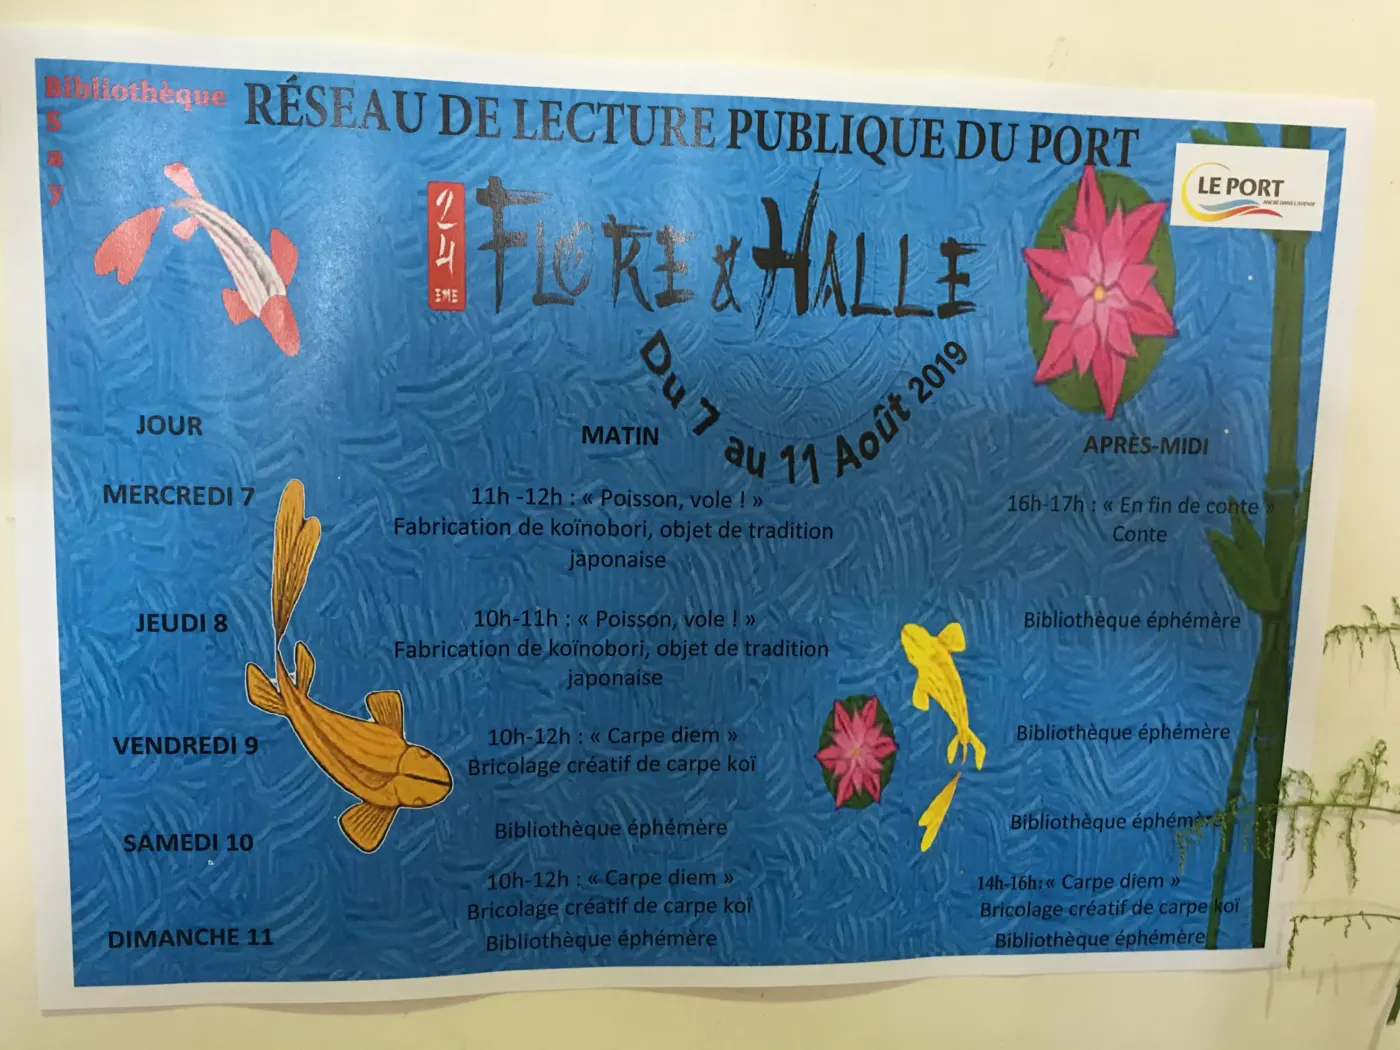 Bibliothèque
Say
RÉSEAU DE LECTURE PUBLIQUE DU PORT
LE PORT
ANCRÉ DANS L'AVENIR
24
EME
FLORE & HALLE
Du 7 au 11 Août 2019
JOUR MATIN APRÈS-MIDI
MERCREDI 7
11h -12h : « Poisson, vole ! »
Fabrication de koïnobori, objet de tradition
japonaise
16h-17h : « En fin de conte »
Conte
JEUDI 8
10h-11h : « Poisson, vole ! »
Fabrication de koïnobori, objet de tradition
japonaise
Bibliothèque éphémère
VENDREDI 9
10h-12h : « Carpe diem »
Bricolage créatif de carpe koï
Bibliothèque éphémère
SAMEDI 10
Bibliothèque éphémère
Bibliothèque éphémère
DIMANCHE 11
10h-12h : « Carpe diem »
Bricolage créatif de carpe koï
Bibliothèque éphémère
14h-16h : « Carpe diem »
Bricolage créatif de carpe koï
Bibliothèque éphémère